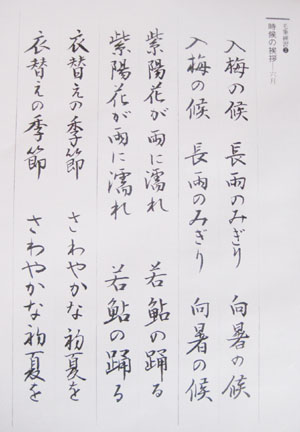 時候の挨拶 六月
入梅の候 長雨のみぎり 向暑の候
入梅の候 長雨のみぎり 向暑の候
紫陽花が雨に濡れ 若鮎の踊る
紫陽花が雨に濡れ 若鮎の踊る
衣替えの季節 さわやかな初夏を
衣替えの季節 さわやかな初夏を